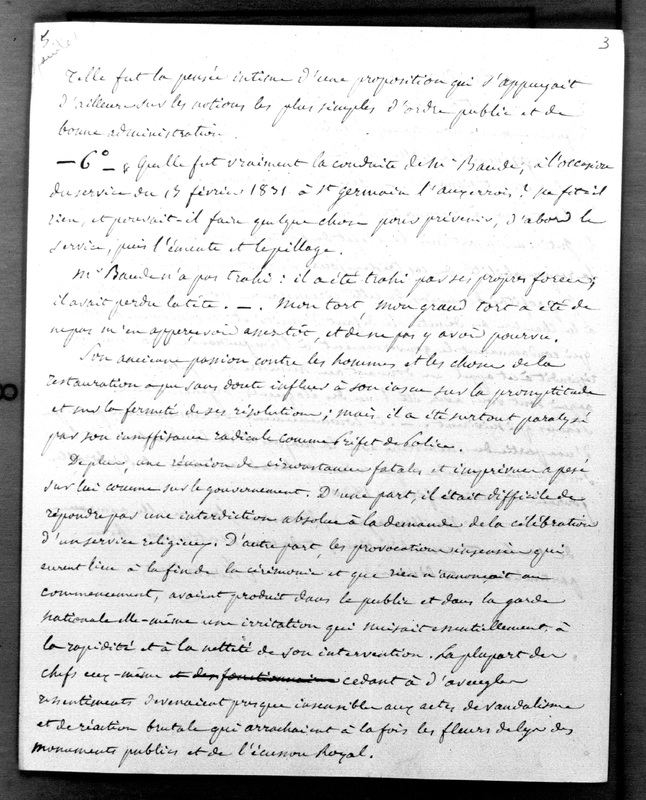 3
Telle fut la pensée intime d'une proposition qui s'appuyait
d'ailleurs sur les notions les plus simples d'ordre public et de
bonne administration.
— 6° — Quelle fut vraiment la conduite de Mr Baude, à l'occasion
du service du 13 février 1831 à St germain l'auxerrois? ne fit-il
rien, et pouvait-il faire quelque chose pour prévenir, d'abord le
service, puis l'émeute et le pillage.
Mr Baude n'a pas trahi : il a été trahi par ses propres forces;
il avait perdu la tête. —. Mon tort, mon grand tort a été de
ne pas m'en apperçevoir assez tôt, et de ne pas y avoir pourvu.
Son ancienne passion contre les hommes et les choses de la
restauration a pu sans doute influer à son insçu sur la promptitude
et sur la fermeté de ses résolutions; mais il a été surtout paralysé
par son insuffisance radicale comme Préfet de Police.
De plus, une réunion de circonstances fatales et imprévues a pesé
sur lui comme sur le gouvernement. D'une part, il était difficile de
répondre par une interdiction absolue à la demande de la célébration
d'un service religieux. D'autre part, les provocations insensées qui
eurent lieu à la fin de la cérémonie et que rien n'annonçait au
commencement, avaient produit dans le public et dans la garde
nationale elle-même une irritation qui nuisait essentiellement à
la rapidité et à la netteté de son intervention. La plupart des
chefs eux-même et des fonctionnaires cedant à d'aveugles
ressentiments devenaient presque insensibles aux actes de vandalisme
et de réaction brutale qui arrachaient à la fois les fleurs de lys des
monuments publics et de l'écusson Royal.